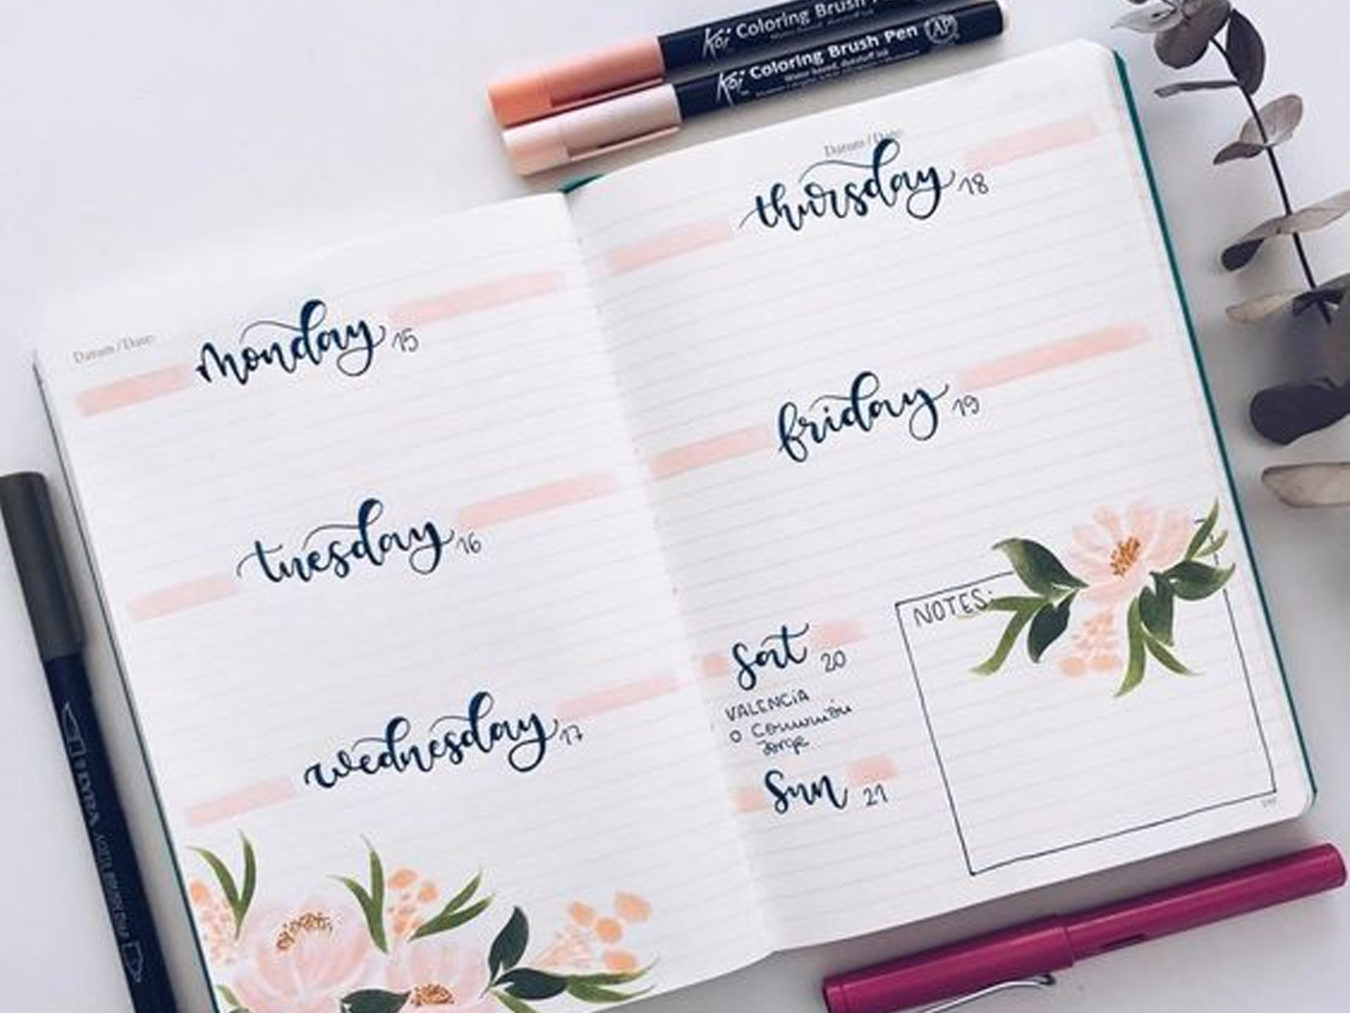 Koi Coloring Brush Pen
Koi Coloring Brush Pen
Water based, dyestuff ink
AP
Datum / Date:
monday 15
tuesday 16
wednesday 17
Datum / Date:
thursday 18
friday 19
sat 20
VALENCiA
o Comunión
Jorge
sun 21
NOTES: